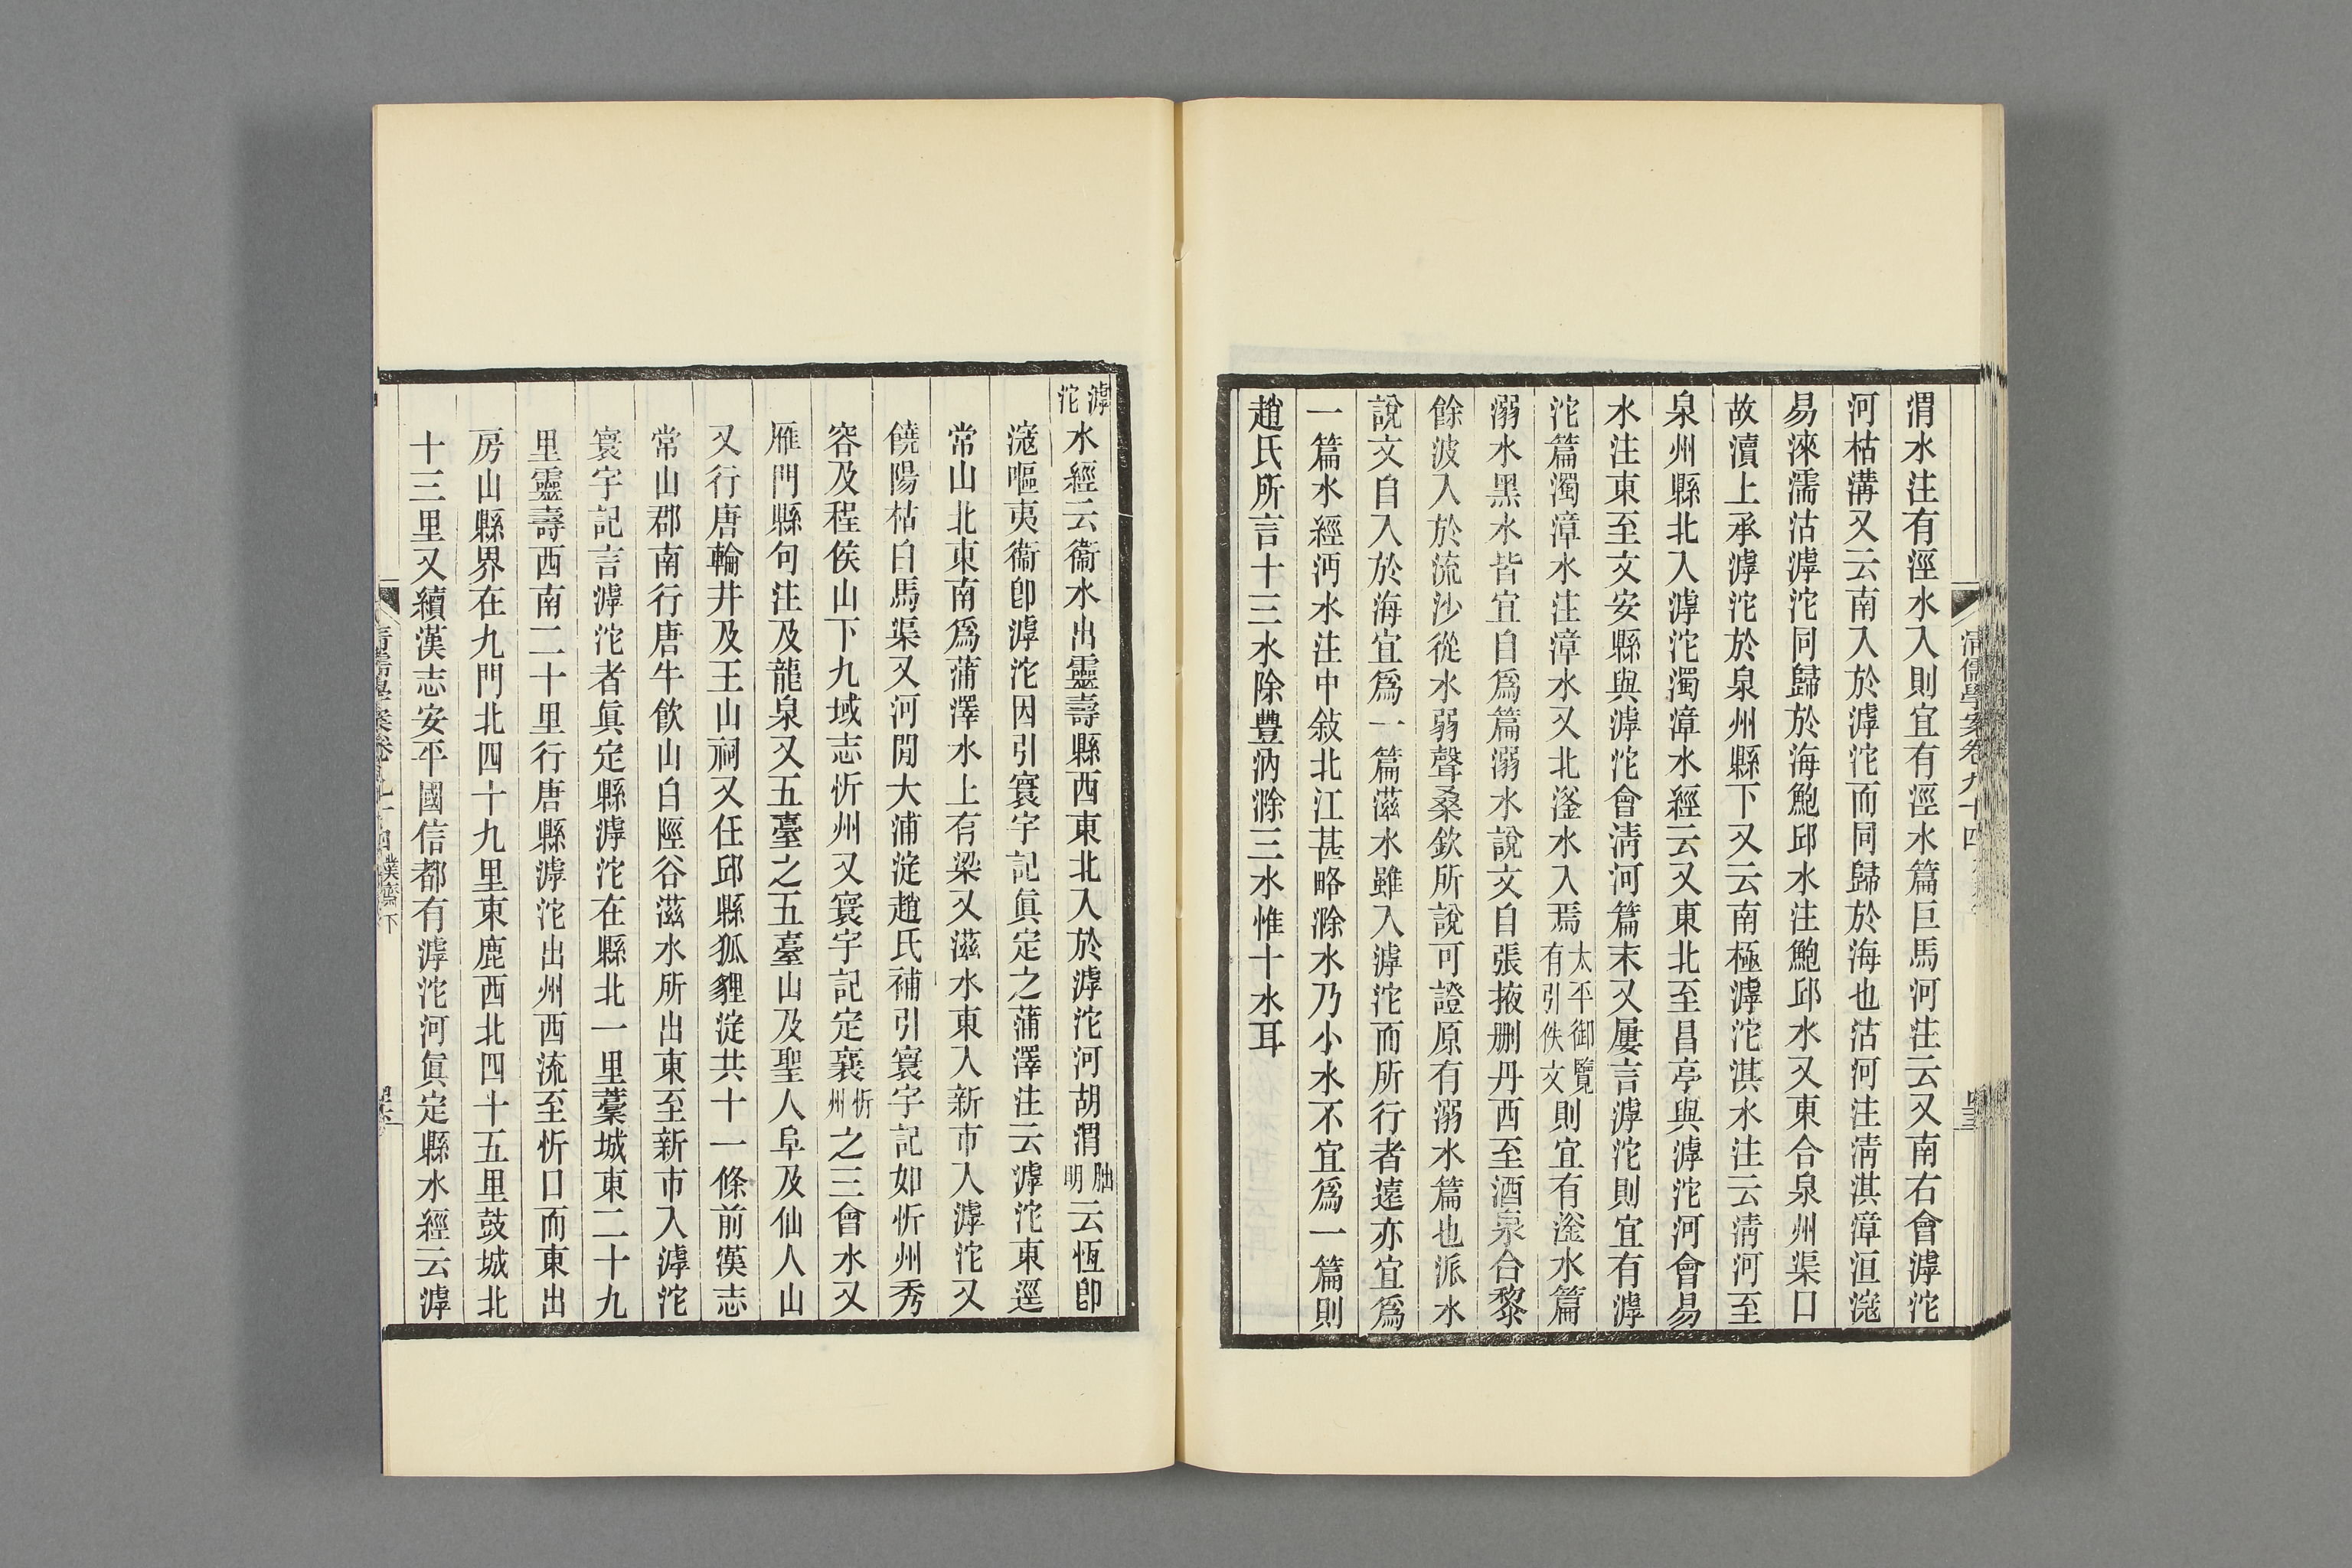 清儒學案卷九十四
渭水注有涇水入則宜有涇水篇巨馬河注云又南右會滹沱
河枯溝又云南入於滹沱而同歸於海也沽河注淸淇漳洹滱
易淶濡沽滹沱同歸於海鮑邱水注鮑邱水又東合泉州渠口
故瀆上承滹沱於泉州縣下又云南極滹沱淇水注云淸河至
泉州縣北入滹沱濁漳水經云又東北至昌亭與滹沱河會易
水注東至文安縣與滹沱會淸河篇末又屢言滹沱則宜有滹
沱篇濁漳水注漳水又北滏水入焉太平御覽有引佚文則宜有滏水篇
溺水黑水皆宜自爲篇溺水說文自張掖刪丹西至酒泉合黎
餘波入於流沙從水弱聲桑欽所說可證原有溺水篇也派水
說文自入於海宜爲一篇滋水雖入滹沱而所行者遠亦宜爲
一篇水經沔水注中敍北江甚略滁水乃小水不宜爲一篇則
趙氏所言十三水除豐汭滁三水惟十水耳
滹沱水經云衞水出靈壽縣西東北入於滹沱河胡渭朏明云恆卽
滱嘔夷衞卽滹沱因引寰宇記眞定之蒲澤注云滹沱東逕
常山北東南爲蒲澤水上有梁又滋水東入新市入滹沱又
饒陽枯白馬渠又河閒大浦淀趙氏補引寰宇記如忻州秀
容及程侯山下九域志忻州又寰宇記定襄忻州之三會水又
雁門縣句注及龍泉又五臺之五臺山及聖人阜及仙人山
又行唐輪井及王山祠又任邱縣狐貍淀共十一條前漢志
常山郡南行唐牛飮山白陘谷滋水所出東至新市入滹沱
寰宇記言滹沱者眞定縣滹沱在縣北一里藁城東二十九
里靈壽西南二十里行唐縣滹沱出州西流至忻口而東出
房山縣界在九門北四十九里東鹿西北四十五里鼓城北
十三里又續漢志安平國信都有滹沱河眞定縣水經云滹
清儒學案卷九十四 樸齋下